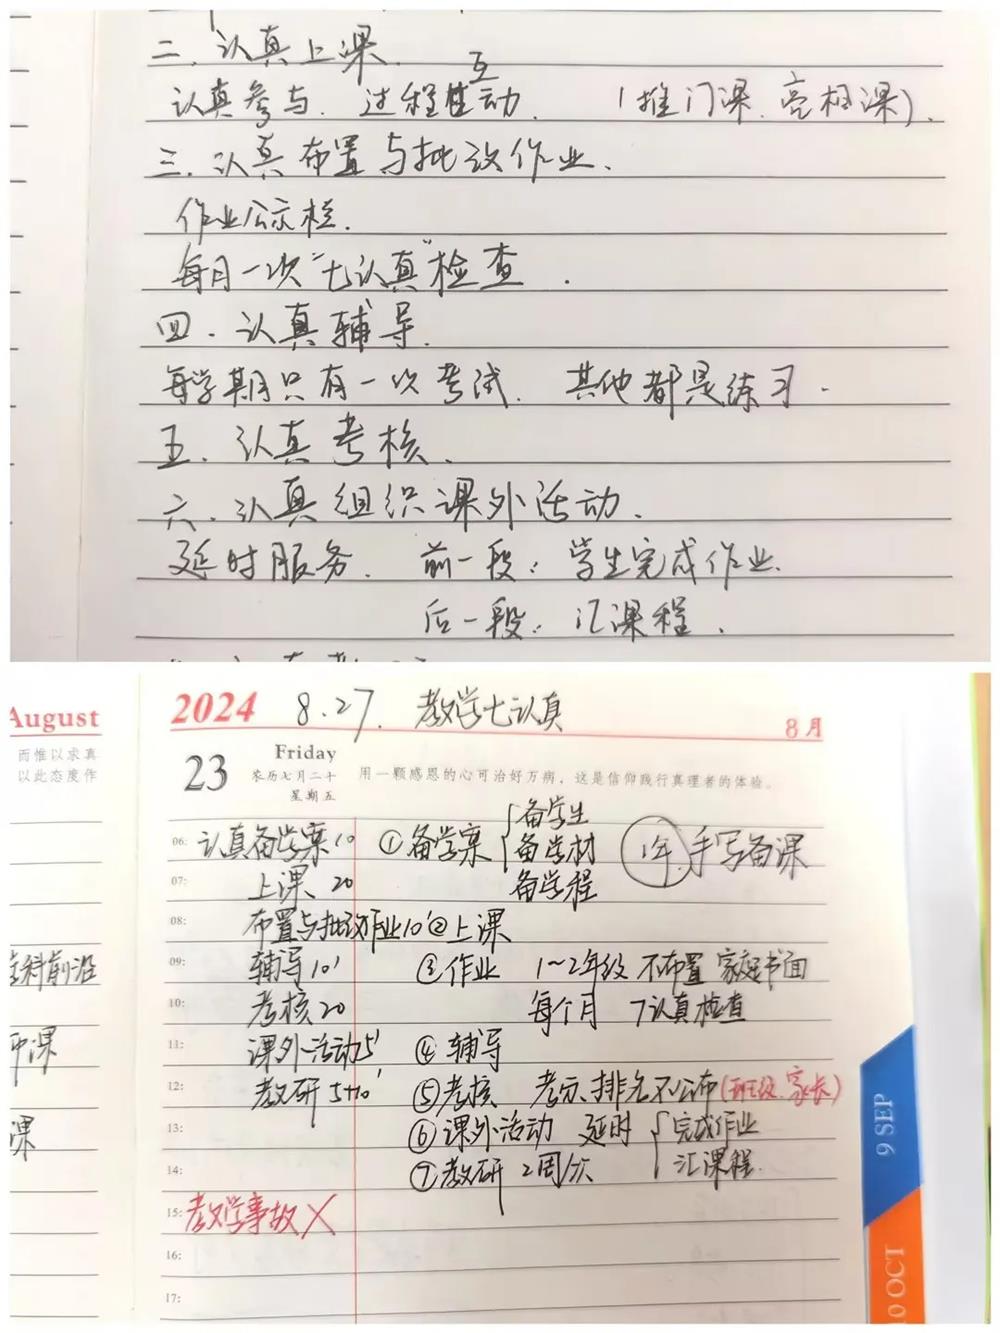 二、认真上课.
互
认真参与. 过程性动. (推门课.亮相课).
三.认真布置与批改作业.
作业公示栏.
每月一次“七认真”检查.
四.认真辅导.
每学期只有一次考试. 其他都是练习.
五.认真考核.
六.认真组织课外活动.
延时服务. 前一段:学生完成作业.
后一段:汇课程.
August
而惟以求真
以此态度作
学科前沿
课
2024 8.27. 教学七认真 8月
23 Friday
农历七月二十
星期五
用一颗感恩的心可治好万病，这是信仰践行真理者的体验。
备学生
06: 认真备学案10 ①备学案 备学材 1年 手写备课
07: 上课 20 备学程
08: 布置与批改作业10' ②上课
09: 辅导10' ③作业 1~2年级 不布置 家庭书面
10: 考核20 每个月 7认真检查
11: 课外活动5' ④辅导
12: 教研5+10' ⑤考核 考示、排名不公布(班级.家长)
13: ⑥课外活动 延时 完成作业
14: ⑦教研 2周/次 汇课程.
15: 教学事故×
16:
17:
9 SEP
10 OCT